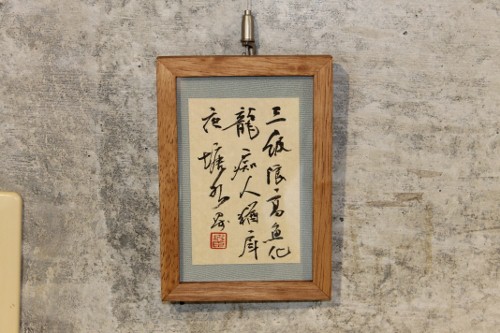 三級浪高魚化
龍痴人猶戽
夜塘水